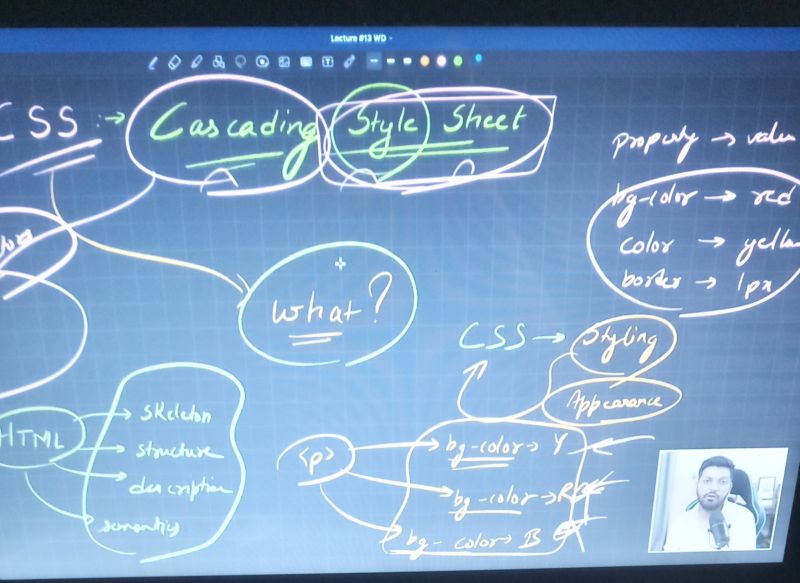 Lecture #13 WD
CSS :→ Cascading Style Sheet
property → value
bg-color → red
color → yellow
border → 1px
What?
CSS → Styling
Appearance
HTML
skeleton
structure
description
semantics
<p>
bg-color → Y
bg-color → R
bg-color → B